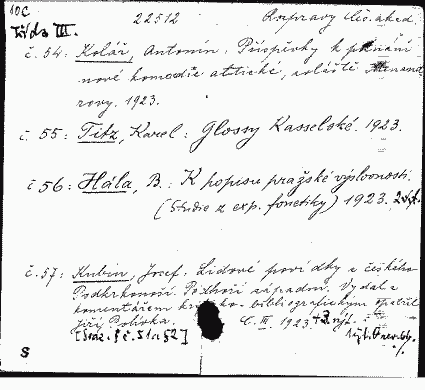 10C 22512 Rozpravy Čes. akad.
Třída III.
č. 54: Kolář, Antonín: Příspěvky k poznání
nové komedie attické, zvláště Menand
rovy. 1923.
č. 55: Titz, Karel: Glossy Kasselské. 1923.
č 56: Hála, B.: K popisu pražské výslovnosti.
(Studie z exp. fonetiky) 1923.
č. 57: Kubín, Josef: Lidové povídky z českého
Podkrkonoší. Podhoří západní. Vydal a
komentářem bibliografickým opatřil
Jiří Polívka. Č. III. 1923. + 2. výt.
[Sváz. s č. 51 a 52]
8